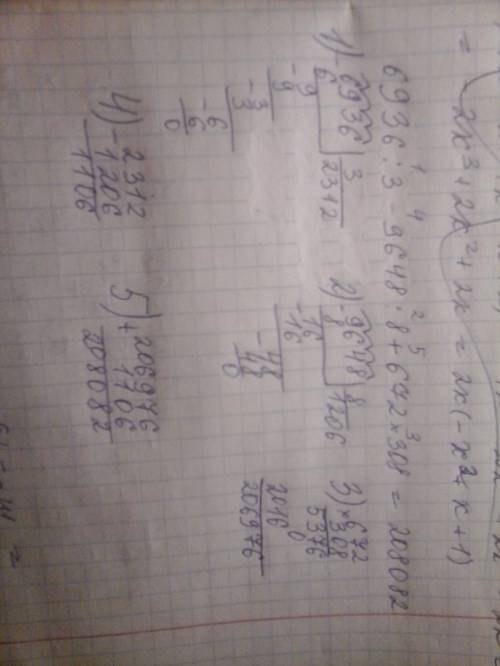 = 2x³ + 2x² + 2x = 2x(-x² + x + 1)
6936 : 3 - 9648 : 8 + 672 × 308 = 208082
1 4 2 5 3
1) - 6936 | 3
6 2312
- 9
9
- 3
3
- 6
6
0
2) - 9648 | 8
8 1206
- 16
16
- 48
48
0
3) × 672
308
5376
0
2016
206976
4) - 2312
1206
1106
5) + 206976
1106
208082